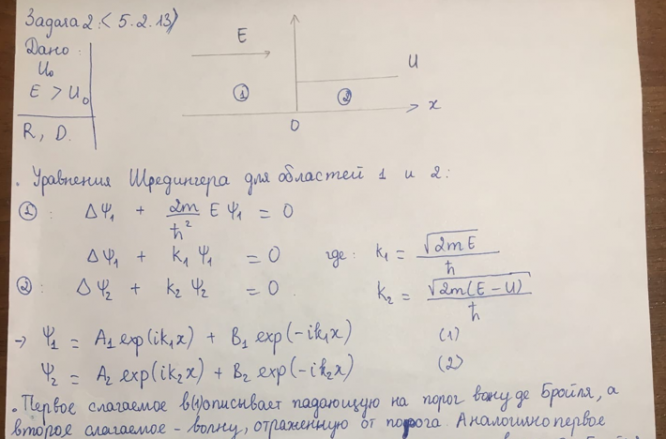 Задача 2: (5.2.13)
Дано:
U₀
E > U₀
R, D.
E
U
① ②
x
0
. Уравнения Шредингера для областей 1 и 2:
①: ΔΨ₁ + 2m/ħ² E Ψ₁ = 0
ΔΨ₁ + k₁ Ψ₁ = 0 где: k₁ = √2mE / ħ
②: ΔΨ₂ + k₂ Ψ₂ = 0 k₂ = √2m(E - U) / ħ
→ Ψ₁ = A₁ exp(ik₁x) + B₁ exp(-ik₁x) (1)
Ψ₂ = A₂ exp(ik₂x) + B₂ exp(-ik₂x) (2)
. Первое слагаемое в(1)описывает падающую на порог волну де Бройля, а
второе слагаемое - волну, отраженную от порога. Аналогично первое